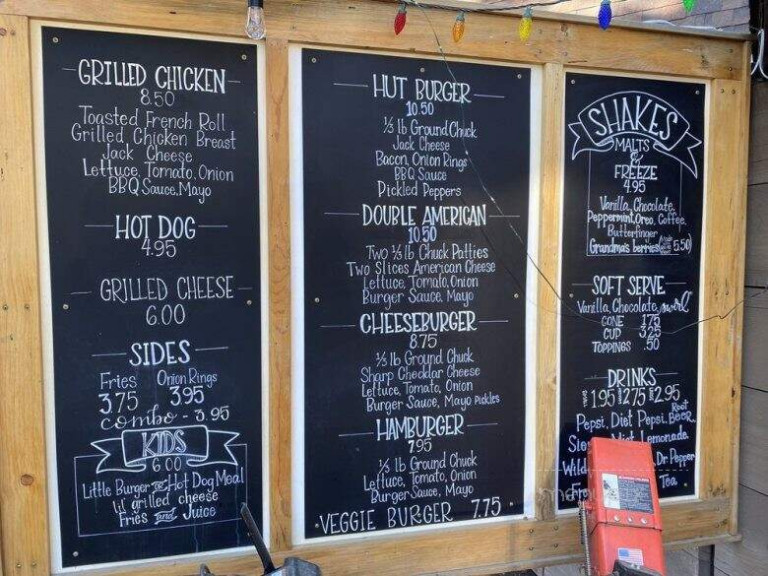 GRILLED CHICKEN
8.50
Toasted French Roll
Grilled Chicken Breast
Jack Cheese
Lettuce, Tomato, Onion
BBQ Sauce, Mayo
HOT DOG
4.95
GRILLED CHEESE
6.00
SIDES
Fries Onion Rings
3.75 3.95
combo - 3.95
KIDS
6.00
Little Burger or Hot Dog Meal
lil grilled cheese
Fries and Juice
HUT BURGER
10.50
1/3 lb Ground Chuck
Jack Cheese
Bacon, Onion Rings
BBQ Sauce
Pickled Peppers
DOUBLE AMERICAN
10.50
Two 1/3 lb Chuck Patties
Two Slices American Cheese
Lettuce, Tomato, Onion
Burger Sauce, Mayo
CHEESEBURGER
8.75
1/3 lb Ground Chuck
Sharp Cheddar Cheese
Lettuce, Tomato, Onion
Burger Sauce, Mayo Pickles
HAMBURGER
7.95
1/3 lb Ground Chuck
Lettuce, Tomato, Onion
Burger Sauce, Mayo
VEGGIE BURGER 7.75
SHAKES
MALTS
&
FREEZE
4.95
Vanilla, Chocolate,
Peppermint, Oreo, Coffee,
Butterfinger
Grandma's berries 5.50)
SOFT SERVE
Vanilla, Chocolate, swirl
CONE 1.75
CUP 3.25
TOPPINGS .50
DRINKS
1.95 2.75 2.95
Pepsi, Diet Pepsi, Root Beer,
Mist Lemonade,
Wild Dr Pepper
Tea